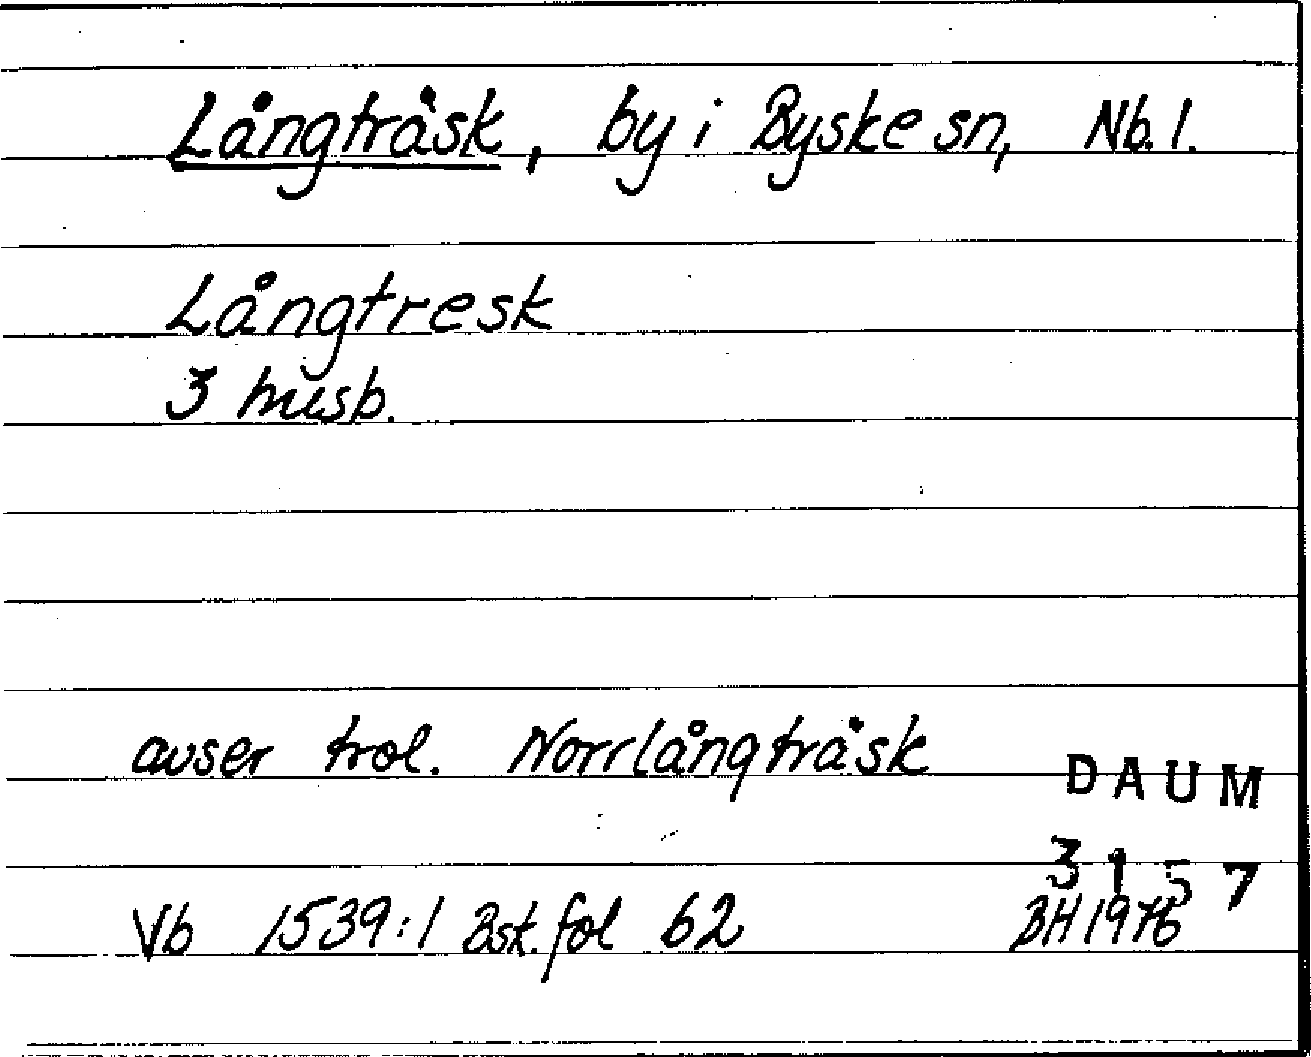 Långträsk, by i Byske sn, Nb. l.
Långtresk
3 husb.
avser trol. Norrlångträsk
DAUM
3157
Vb 1539:1 Bst. fol 62 BH 1976